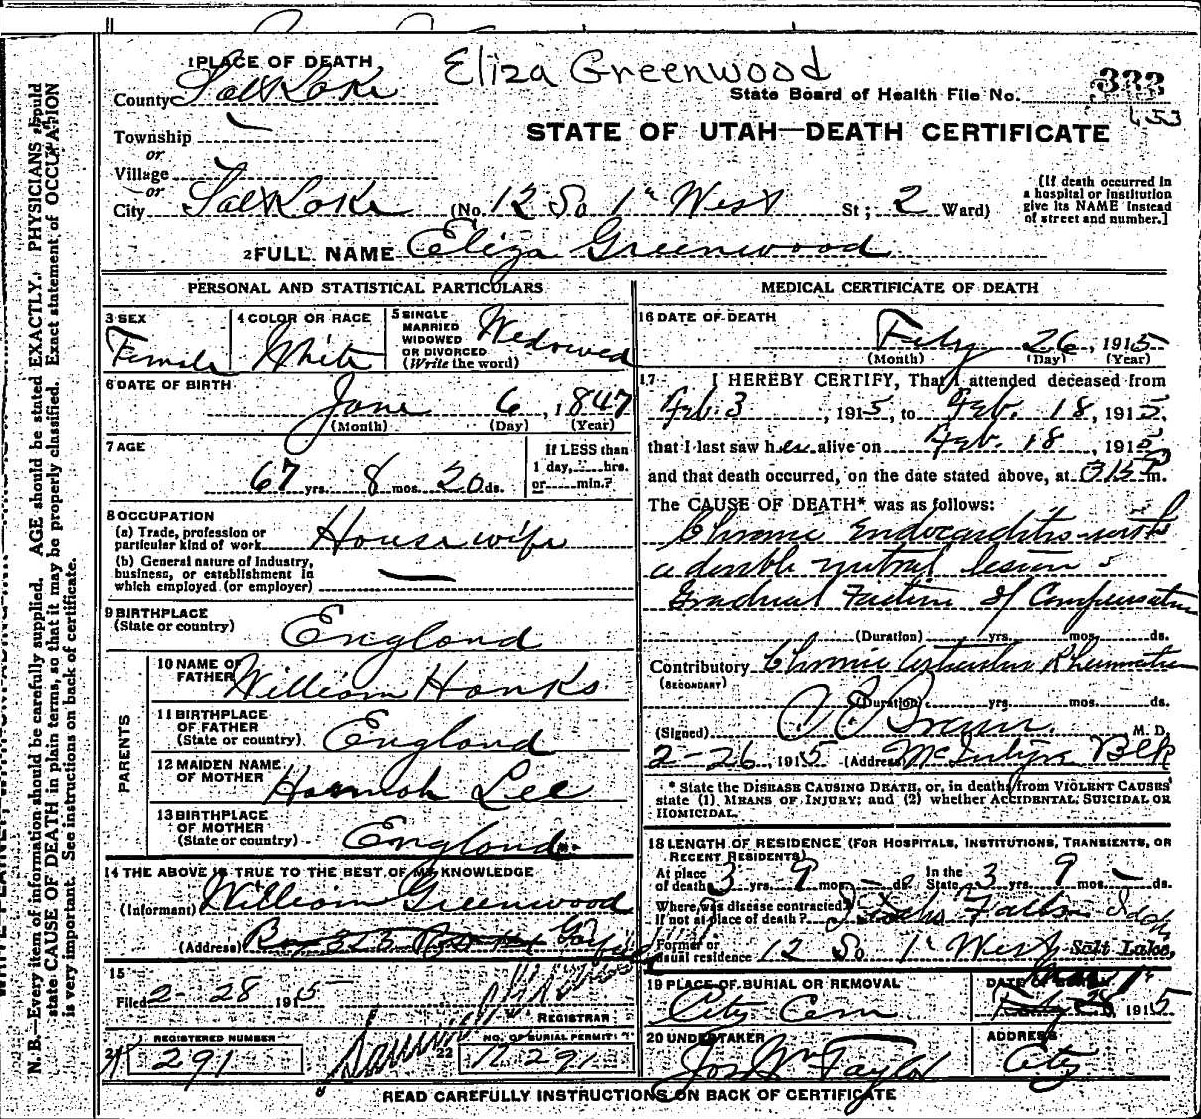 Eliza Greenwood
1 PLACE OF DEATH
County Salt Lake
State Board of Health File No. 333
453
Township
or
Village
or
STATE OF UTAH—DEATH CERTIFICATE
City Salt Lake (No. 12 So 1st West St; 2 Ward)
[If death occurred in
a hospital or institution
give its NAME instead
of street and number.]
2 FULL NAME Eliza Greenwood
PERSONAL AND STATISTICAL PARTICULARS
3 SEX
Female
4 COLOR OR RACE
White
5 SINGLE
MARRIED
WIDOWED
OR DIVORCED
(Write the word)
Widowed
6 DATE OF BIRTH
June 6, 1847
(Month) (Day) (Year)
7 AGE
67 yrs. 8 mos. 20 ds.
If LESS than
1 day, hrs.
or min.?
8 OCCUPATION
(a) Trade, profession or
particular kind of work Housewife
(b) General nature of Industry,
business, or establishment in
which employed (or employer)
9 BIRTHPLACE
(State or country) England
PARENTS
10 NAME OF
FATHER William Hanks
11 BIRTHPLACE
OF FATHER
(State or country) England
12 MAIDEN NAME
OF MOTHER Hannah Lee
13 BIRTHPLACE
OF MOTHER
(State or country) England
14 THE ABOVE IS TRUE TO THE BEST OF MY KNOWLEDGE
(Informant) William Greenwood
(Address) Box 323
15
Filed 2-28 1915
REGISTRAR
REGISTERED NUMBER
291
22
NO. OF BURIAL PERMIT
17291
MEDICAL CERTIFICATE OF DEATH
16 DATE OF DEATH
Feby 26, 1915
(Month) (Day) (Year)
17 I HEREBY CERTIFY, That I attended deceased from
Feb. 3, 1915, to Feb. 18, 1915,
that I last saw her alive on Feb. 18, 1915
and that death occurred, on the date stated above, at 315 P m.
The CAUSE OF DEATH* was as follows:
Chronic Endocarditis with
a double mitral lesion
Gradual of Compensation
(Duration) yrs. mos. ds.
Contributory Chronic Articular Rheumatism
(SECONDARY)
(Duration) yrs. mos. ds.
(Signed) Brown M. D.
2-26, 1915 (Address) McIntyre Blk
* State the DISEASE CAUSING DEATH, or, in deaths from VIOLENT CAUSES
state (1) MEANS OF INJURY; and (2) whether ACCIDENTAL, SUICIDAL OR
HOMICIDAL.
18 LENGTH OF RESIDENCE (FOR HOSPITALS, INSTITUTIONS, TRANSIENTS, OR
RECENT RESIDENTS)
At place
of death 3 yrs. 9 mos. ds.
In the
State 3 yrs. 9 mos. ds.
Where was disease contracted
If not at place of death? Idaho Falls Idah
Former or
usual residence 12 So 1st West Salt Lake,
19 PLACE OF BURIAL OR REMOVAL
City Cem
DATE OF BURIAL
1915
20 UNDERTAKER
Jos Wm Taylor
ADDRESS
City
READ CAREFULLY INSTRUCTIONS ON BACK OF CERTIFICATE
N. B.—Every item of information should be carefully supplied. AGE should be stated EXACTLY. PHYSICIANS should
state CAUSE OF DEATH in plain terms, so that it may be properly classified. Exact statement of OCCUPATION
is very important. See instructions on back of certificate.